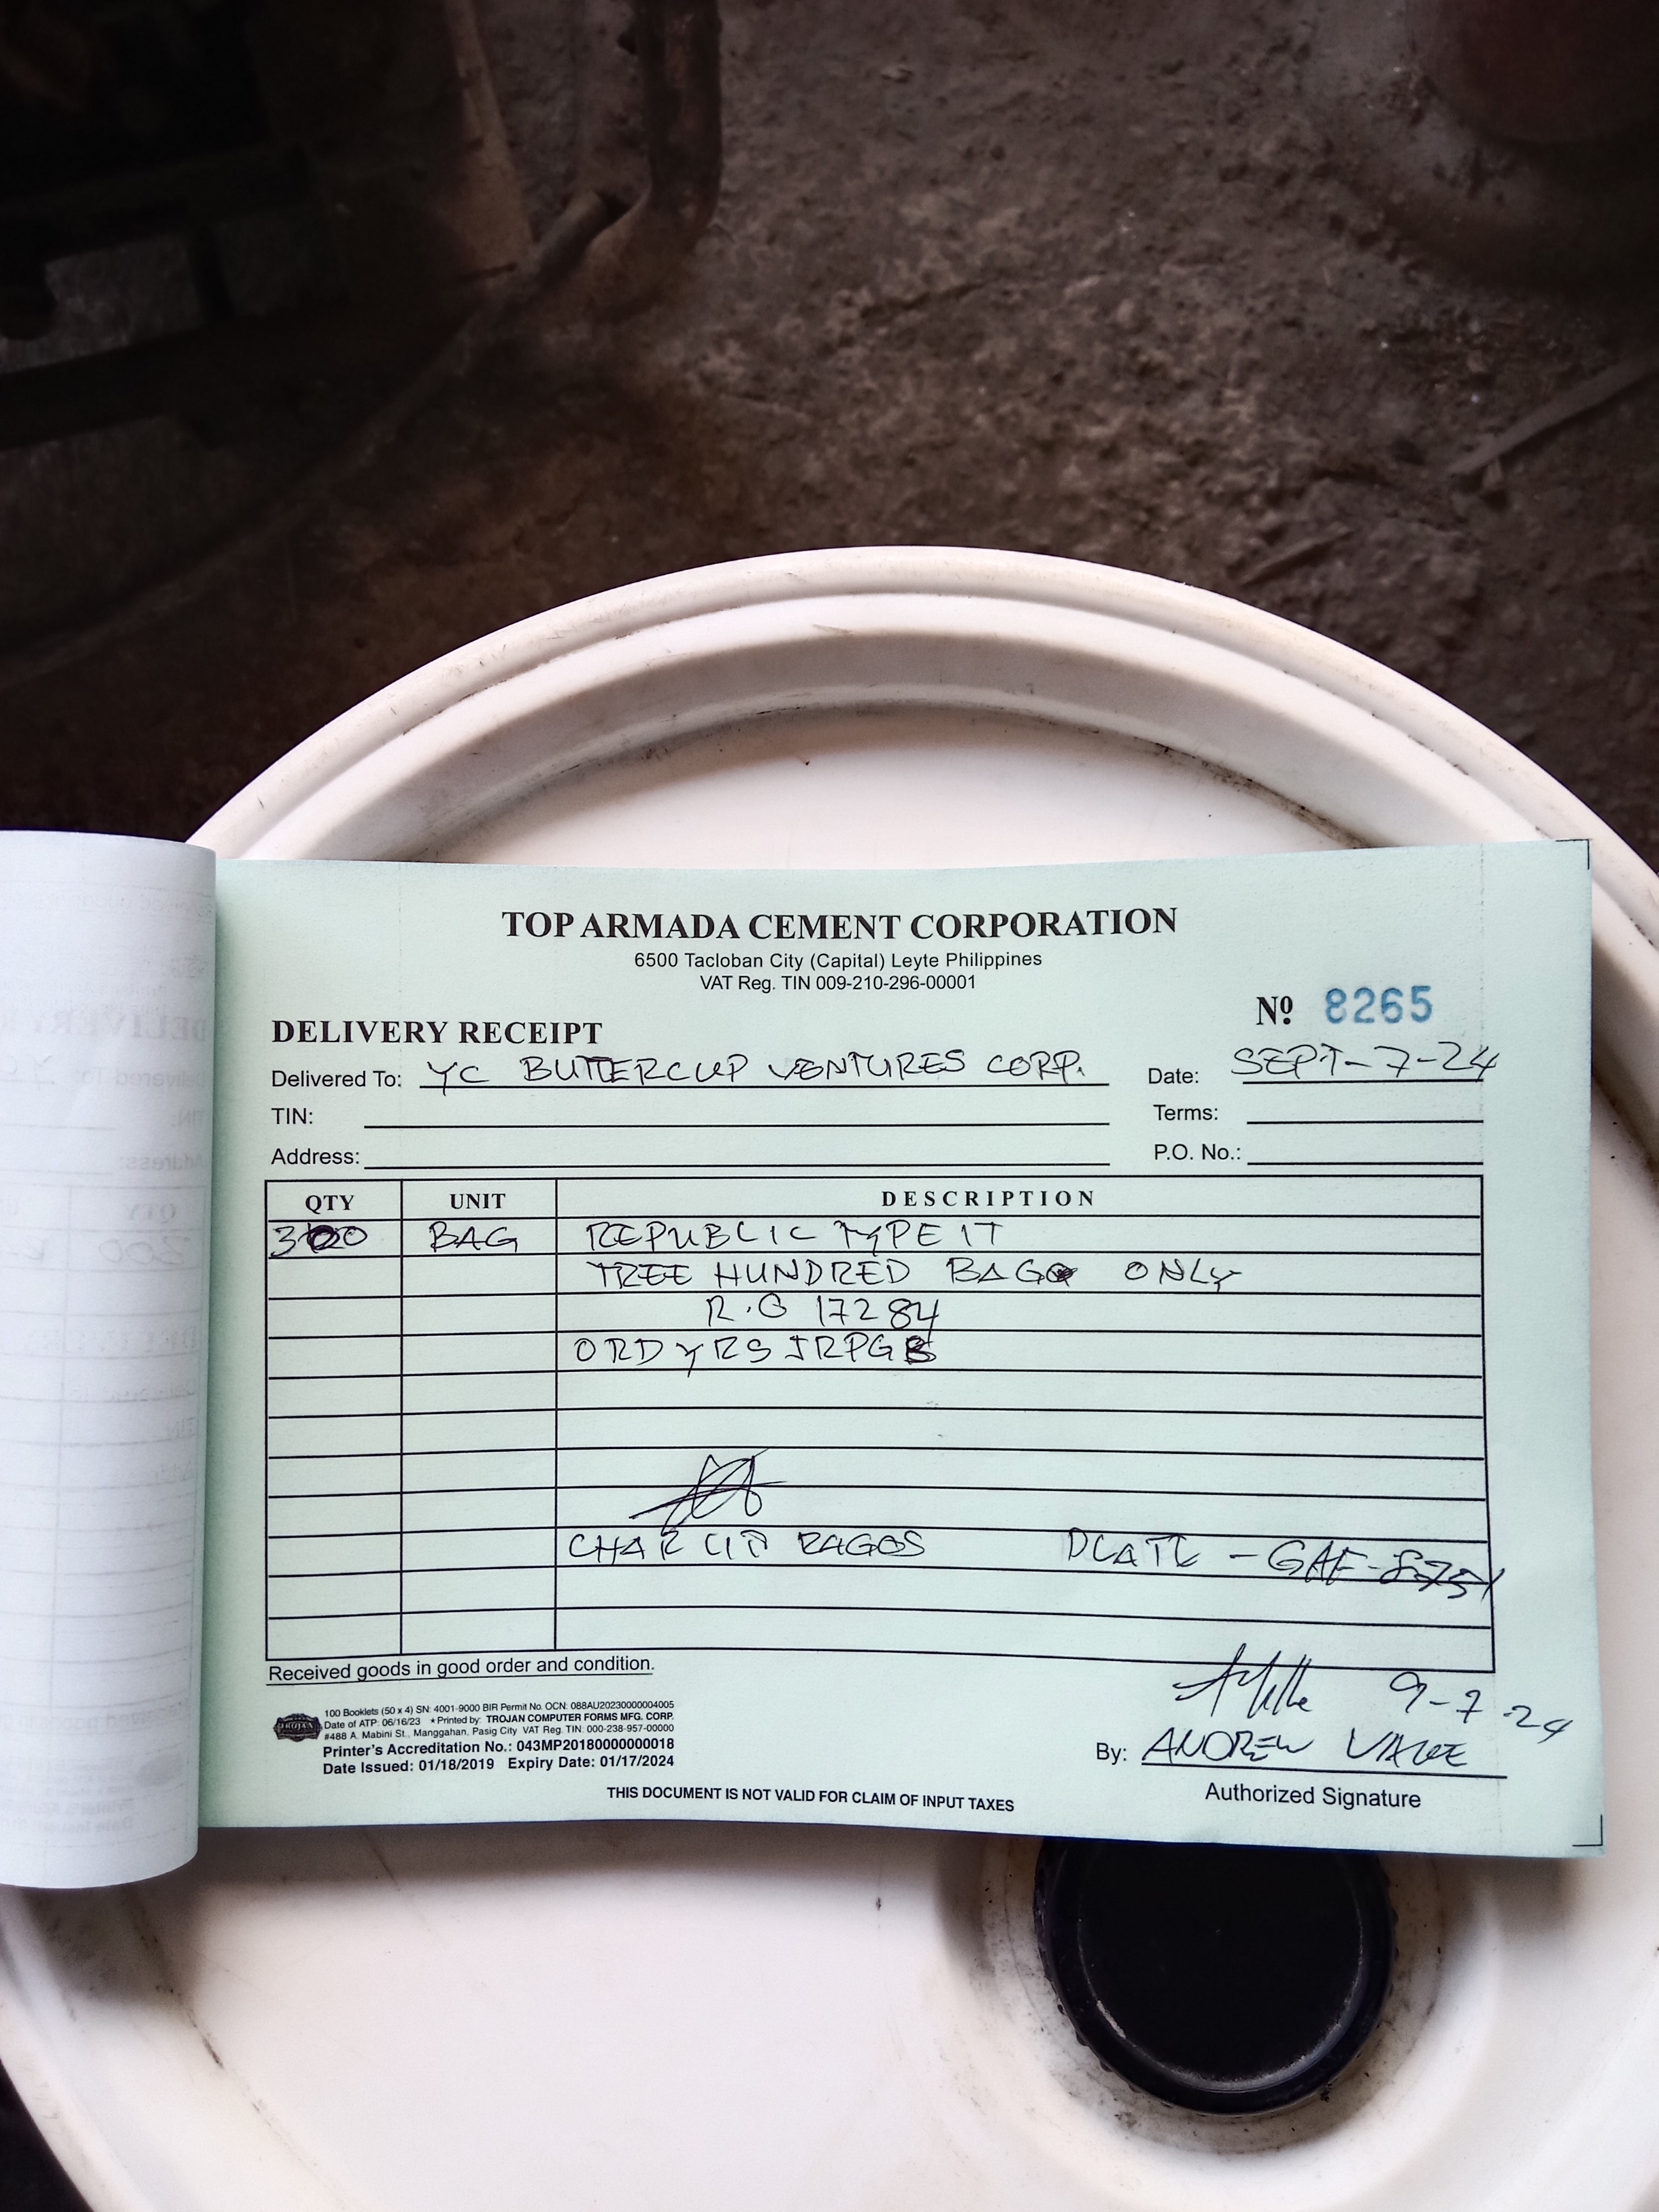 TOP ARMADA CEMENT CORPORATION
6500 Tacloban City (Capital) Leyte Philippines
VAT Reg. TIN 009-210-296-00001
Nº 8265
DELIVERY RECEIPT
Delivered To: YC BUTTERCUP VENTURES CORP. Date: SEPT-7-24
TIN: Terms:
Address: P.O. No.:
QTY UNIT DESCRIPTION
300 BAG REPUBLIC TYPE 1T
TREE HUNDRED BAG ONLY
R.G 17284
ORDYRSJRPGB
CHARLIE RAGOS PLATE - GAF-
Received goods in good order and condition.
9-7-24
TROJAN
100 Booklets (50 x 4) SN: 4001-9000 BIR Permit No. OCN: 088AU20230000004005
Date of ATP: 06/16/23 * Printed by: TROJAN COMPUTER FORMS MFG. CORP.
#488 A. Mabini St., Manggahan, Pasig City VAT Reg. TIN: 000-238-957-00000
Printer's Accreditation No.: 043MP20180000000018
Date Issued: 01/18/2019 Expiry Date: 01/17/2024
By: ANDREW
Authorized Signature
THIS DOCUMENT IS NOT VALID FOR CLAIM OF INPUT TAXES